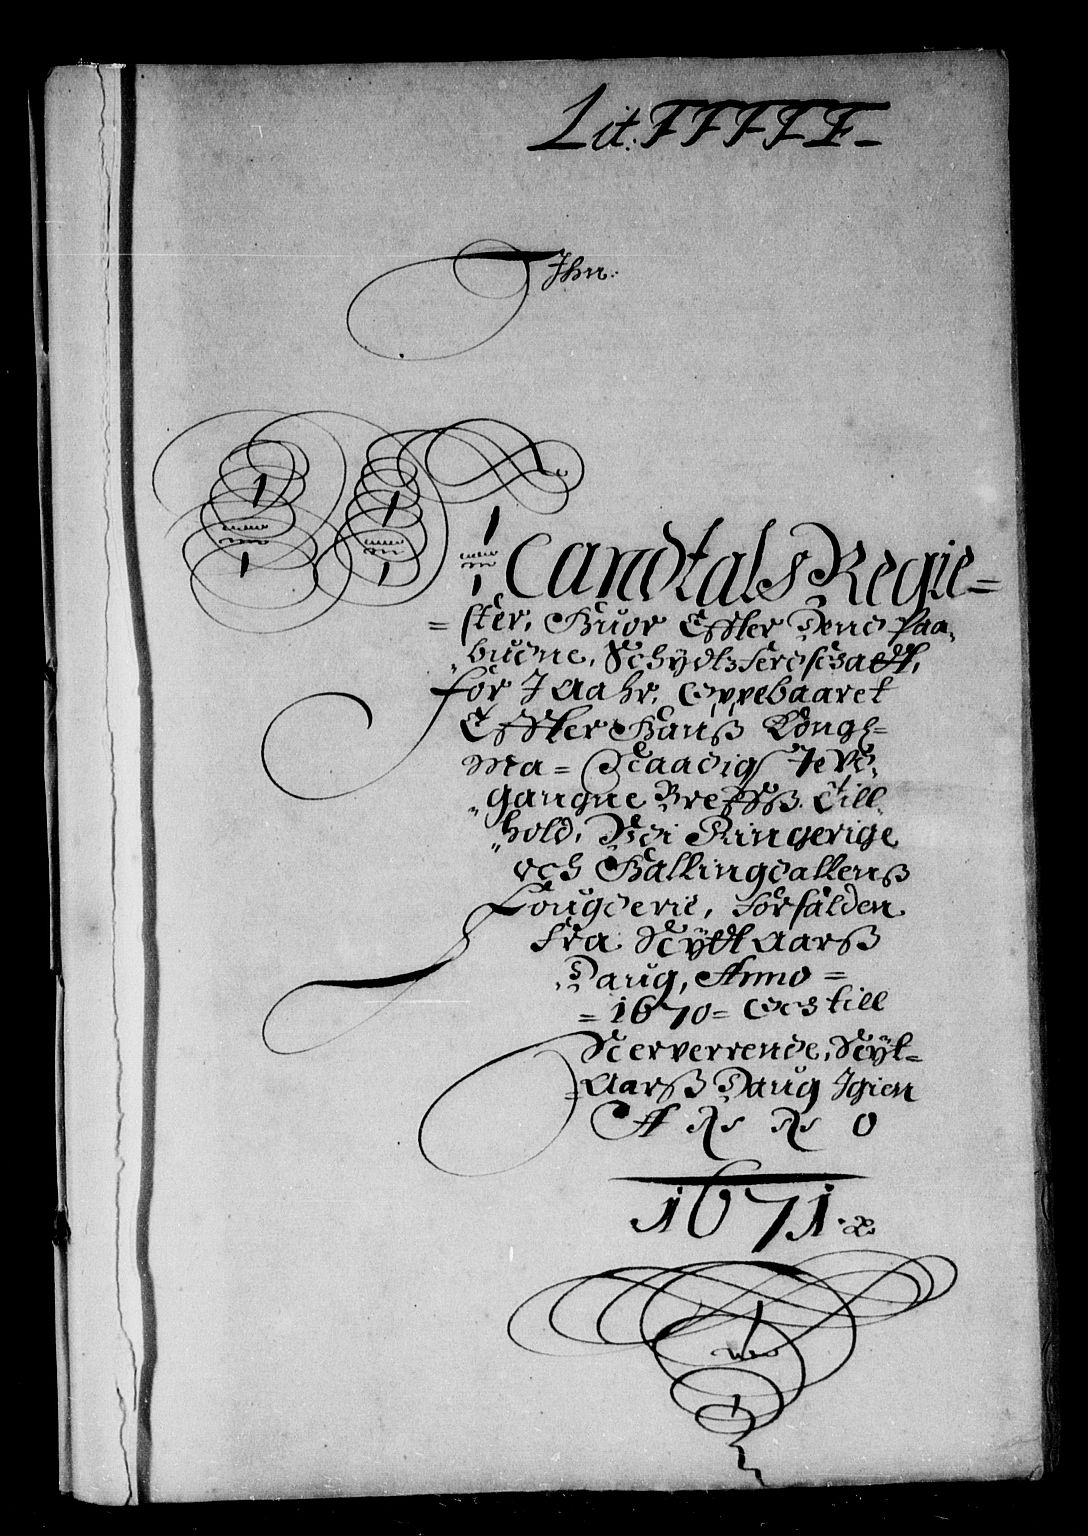 Lit: FFFFF
Jhn:
Mandtals Regie=
=ster, Huor Effter Dend Paa„
„budne, Schydtzferdschatt,
for J Aahr, Oppebaaret
Effter Hanß Kongl=
Ma= Naadigst
„gangne Breffß Till„
„hold, Udi Ringerige
och Hallingdallenß
Fougderie, forfalden
fra Nytt Aarß
Daug, Anno=
=1670= Och till
Nerverrende, Nyt=
=Aarß Daug Igien
A N N O
1671.